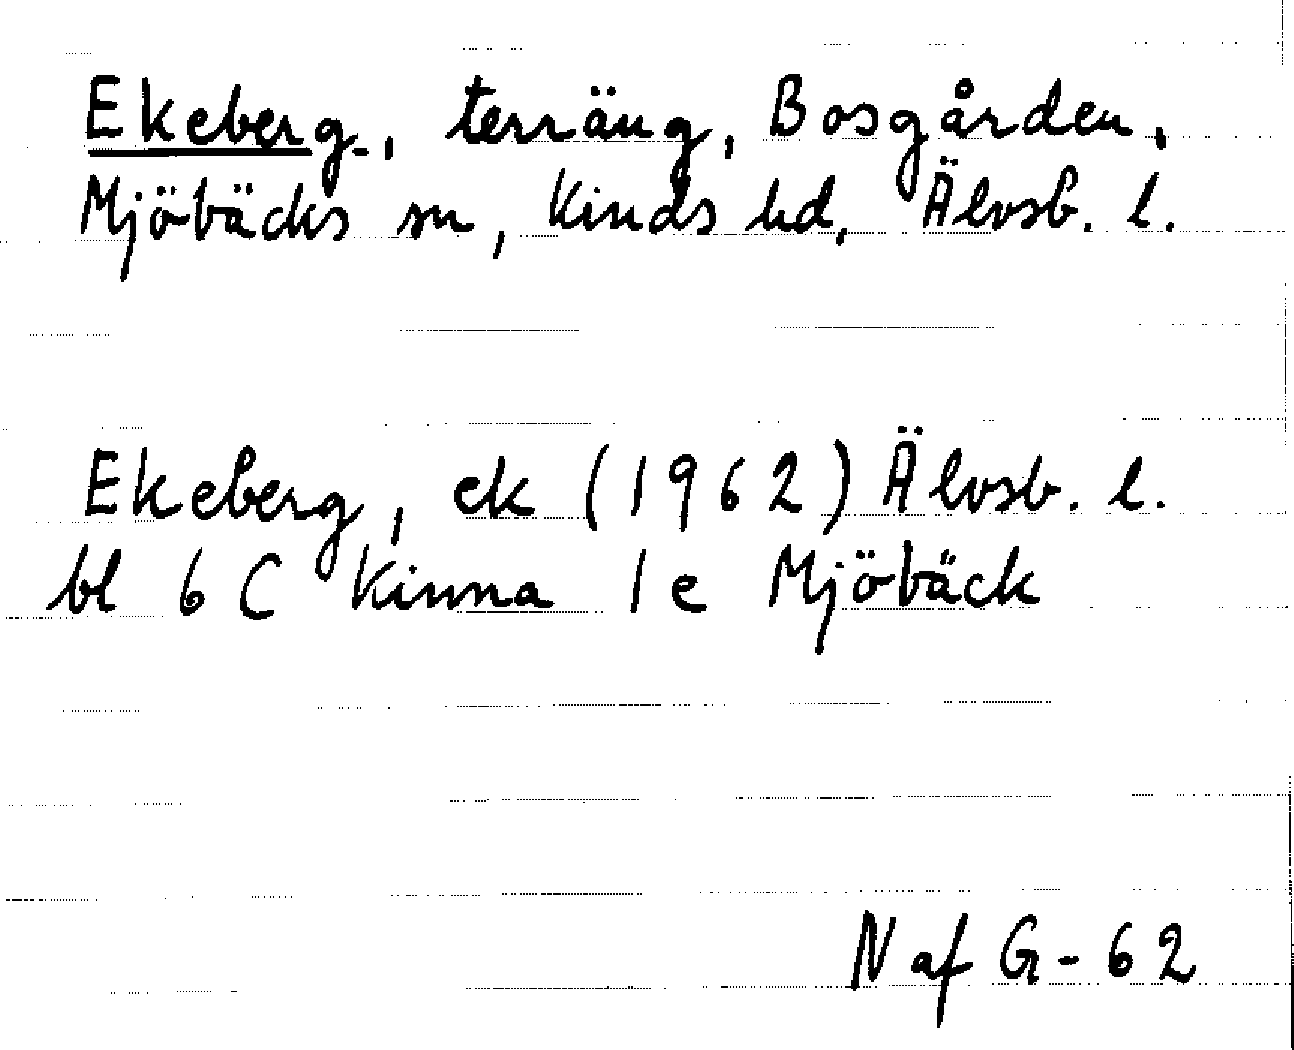 Ekeberg, terräng, Bosgården,
Mjöbäcks sn, Kinds hd, Älvsb. l.
Ekeberg, ek (1962) Älvsb. l.
bl 6 C Kinna 1 e Mjöbäck
N af G-62